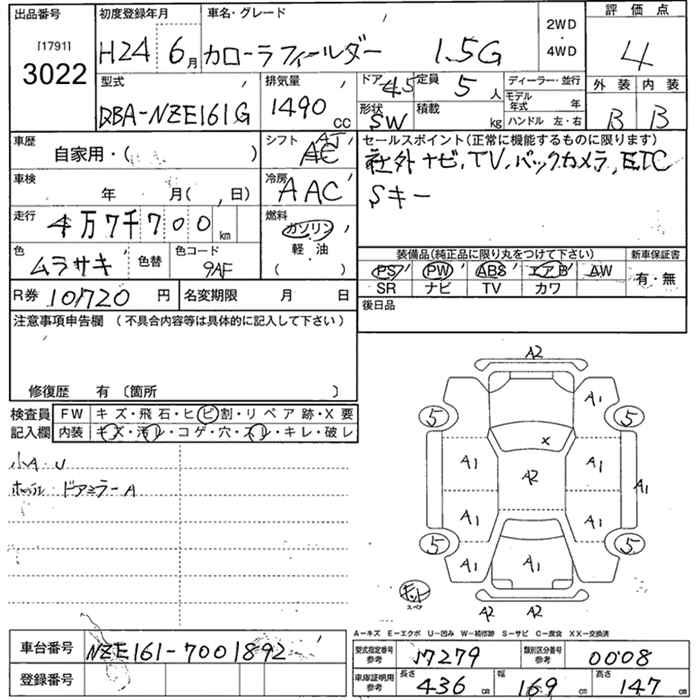 出品番号
[1791]
3022
初度登録年月
H24 6月
車名・グレード
カローラ フィールダー 1.5G
2WD
・
4WD
評価点
4
外装 内装
B B
型式
DBA-NZE161G
排気量
1490 CC
ドア
4.5
定員
5人
形状
SW
積載
kg
ディーラー・並行
モデル年式 年
ハンドル 左・右
車歴
自家用・( )
シフト
AT
車検
年 月( , 日)
冷房
AAC
走行
4万7千700km
燃料
ガソリン
軽・油
( )
色
ムラサキ 色替
色コード
9AF
R券 10720 円
名変期限 月 日
セールスポイント(正常に機能するものに限ります)
社外ナビ, TV, バックカメラ, ETC
Sキー
装備品(純正品に限り丸をつけて下さい)
新車保証書
PS PW ABS エアB AW
有・無
SR ナビ TV カワ
後日品
注意事項申告欄 (不具合内容等は具体的に記入して下さい)
修復歴 有 〔箇所 〕
検査員記入欄
FW キズ・飛石・ヒビ割・リペア跡・X要
内装 キズ・汚レ・コゲ・穴・スレ・キレ・破レ
小A・U
ドアミラーA
A2
A1
5 5
X
A1 A2 A1
A1
A1 A1
5 5
A1
キット
スペア
A2 A2
A-キズ E-エクボ U-凹み W-補修跡 S-サビ C-腐食 XX-交換済
車台番号 NZE161-7001892
登録番号
型式指定番号
参考
17279
類別区分番号
参考
0008
車庫証明用
参考
長さ
436cm
幅
169cm
高さ
147cm